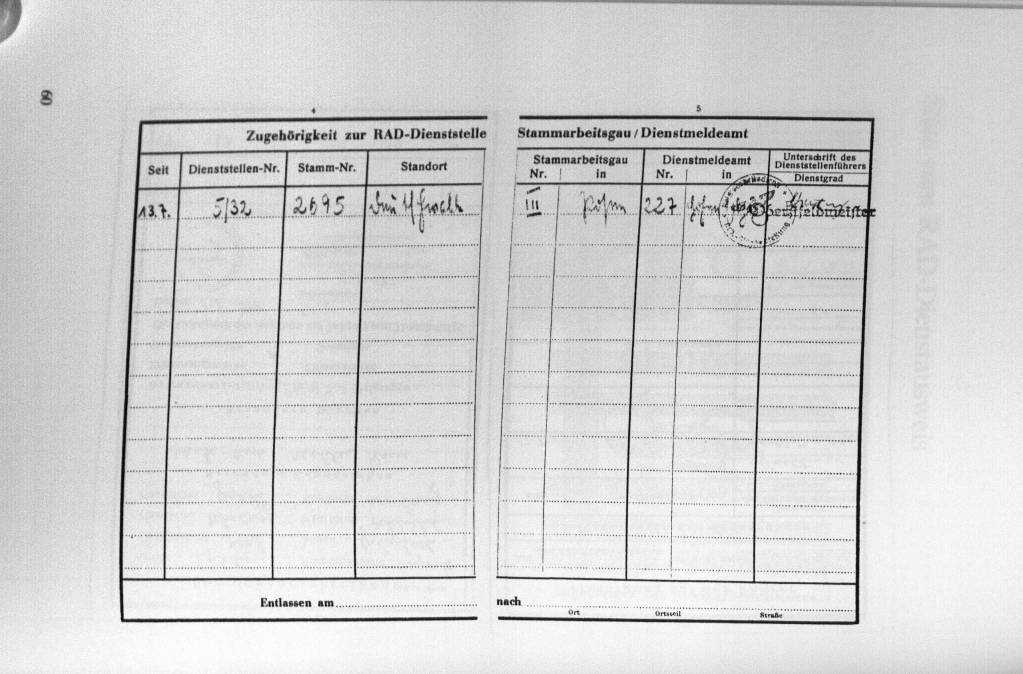 60
4
5
Zugehörigkeit zur RAD-Dienststelle
Stammarbeitsgau / Dienstmeldeamt
Seit
Dienststellen-Nr.
Stamm-Nr.
Standort
Stammarbeitsgau
Nr. in
Dienstmeldeamt
Nr. in
Unterschrift des
Dienststellenführers
Dienstgrad
13.7. 5/32 2695
III 227 Oberstfeldmeister
Entlassen am
nach
Ort Ortsteil Straße
RAD-Dienausweis